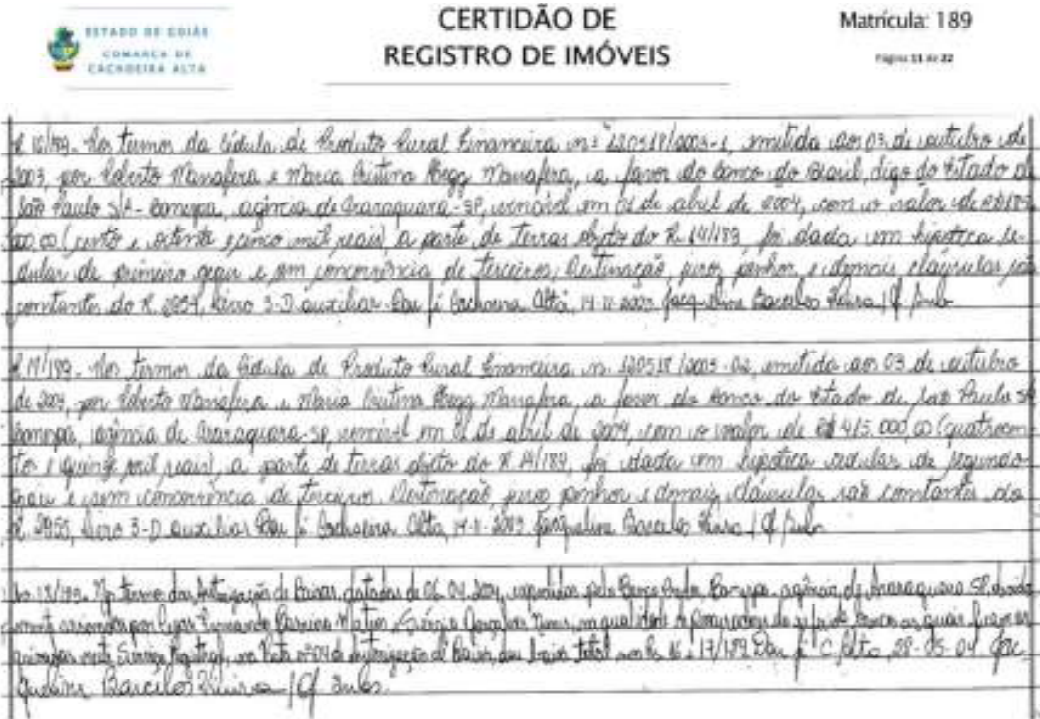 ESTADO DE GOIÁS
COMARCA DE
CACHOEIRA ALTA
CERTIDÃO DE
REGISTRO DE IMÓVEIS
Matrícula: 189
Página 11 de 22
R.16/189- Nos termos da Cédula de Produto Rural Financeira nº 120518/2003-1, emitida aos 03 de outubro de
2003, por Roberto e Maria Cristina a favor do Banco do Brasil, digo do Estado de
São Paulo S/A- Banespa, agência de Araraquara-SP, vencível em 01 de abril de 2004, com o valor de R$185.
000,00 (cento e oitenta e cinco mil reais), a parte de terras objeto do R.14/189, foi dada em hipoteca ce-
dular de primeiro grau e sem concorrência de terceiros. Destinação, juros, penhor, e demais cláusulas são
constantes do R. 2954, Livro 3-D auxiliar- Dou fé Cachoeira Alta, 14-11-2003. Jacqueline Barcelos / Of Sub
R.17/189- Nos termos da Cédula de Produto Rural Financeira nº 120518/2003-02, emitida aos 03 de outubro
de por Roberto e Maria Cristina a favor do Banco do Estado de São Paulo SA
Banespa, agência de Araraquara-SP, vencível em 01 de abril de 2004, com o valor de R$ 415.000,00 (quatrocen-
tos e quinze mil reais), a parte de terras objeto do R.14/189, foi dada em hipoteca cedular de segundo
grau e sem concorrência de terceiros. Destinação, juros penhor e demais cláusulas são constantes do
R. 2955, Livro 3-D auxiliar Dou fé Cachoeira Alta, Jacqueline Barcelos / Of Sub
Av.18/189- Nos termos das Autorização de Baixas, datadas de 06.04.2004, expedidas pelo Banco Banespa, agência de Araraquara SP,
assinadas por Fernando Mattos e Sérgio Gonçalves Nunes, na qualidade de Procuradores do referido Banco, as quais ficaram
arquivadas neste Serviço Registral, na Pasta nº04 de Autorização de Baixa, dou baixa total nos R. 16 e 17/189 Dou fé C. Alta, 28-05-04 Jac-
queline Barcelos / Of Subs.